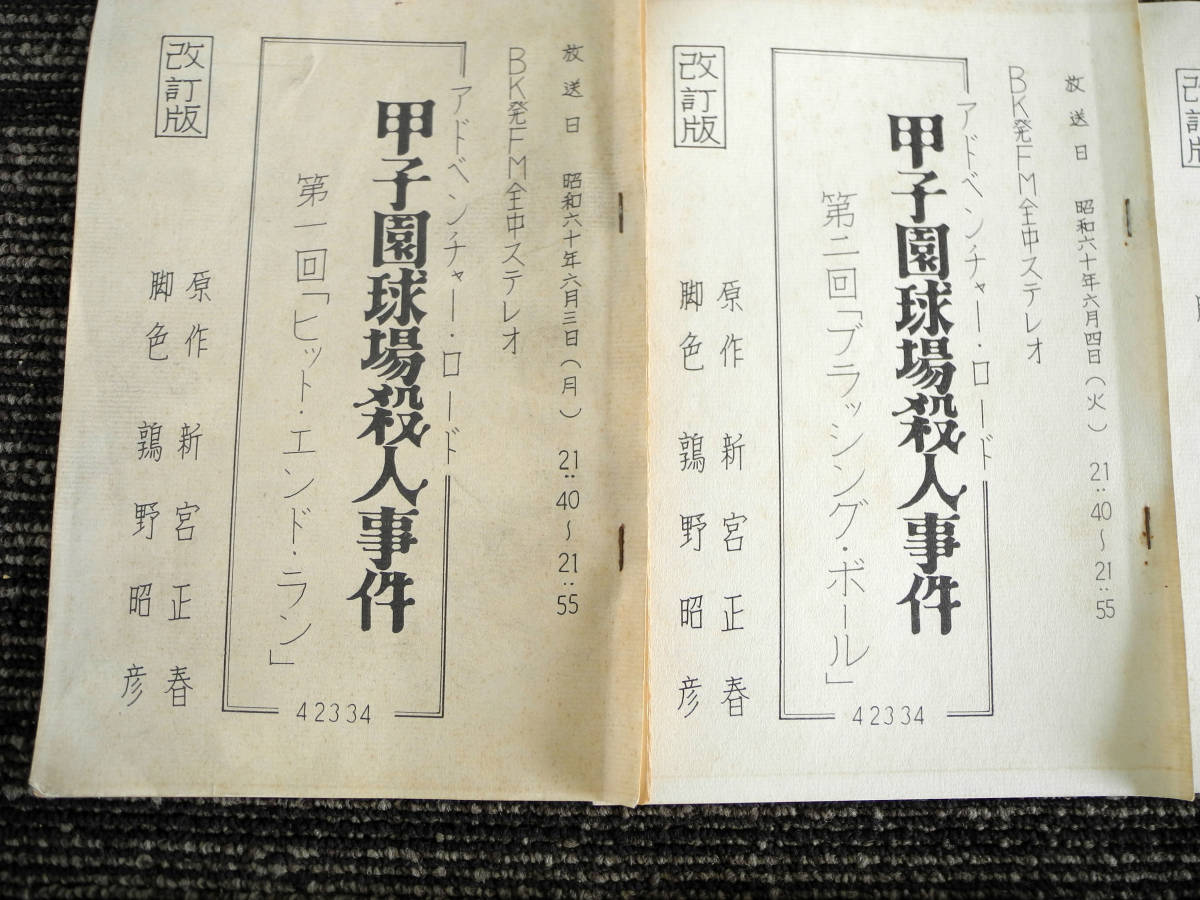 放送日 昭和六十年六月三日(月) 21:40~21:55
BK発FM全中ステレオ
アドベンチャー・ロード
甲子園球場殺人事件
第一回「ヒット・エンド・ラン」
42334
改訂版
原作 新宮正春
脚色 鶉野昭彦
放送日 昭和六十年六月四日(火) 21:40~21:55
BK発FM全中ステレオ
アドベンチャー・ロード
甲子園球場殺人事件
第二回「ブラッシング・ボール」
42334
改訂版
原作 新宮正春
脚色 鶉野昭彦
改訂版